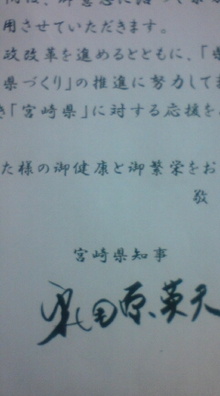 用させていただきます。
政改革を進めるとともに、「県
県づくり」の推進に努力して
き「宮崎県」に対する応援を
た様の御健康と御繁栄をお
敬
宮崎県知事
東国原英夫